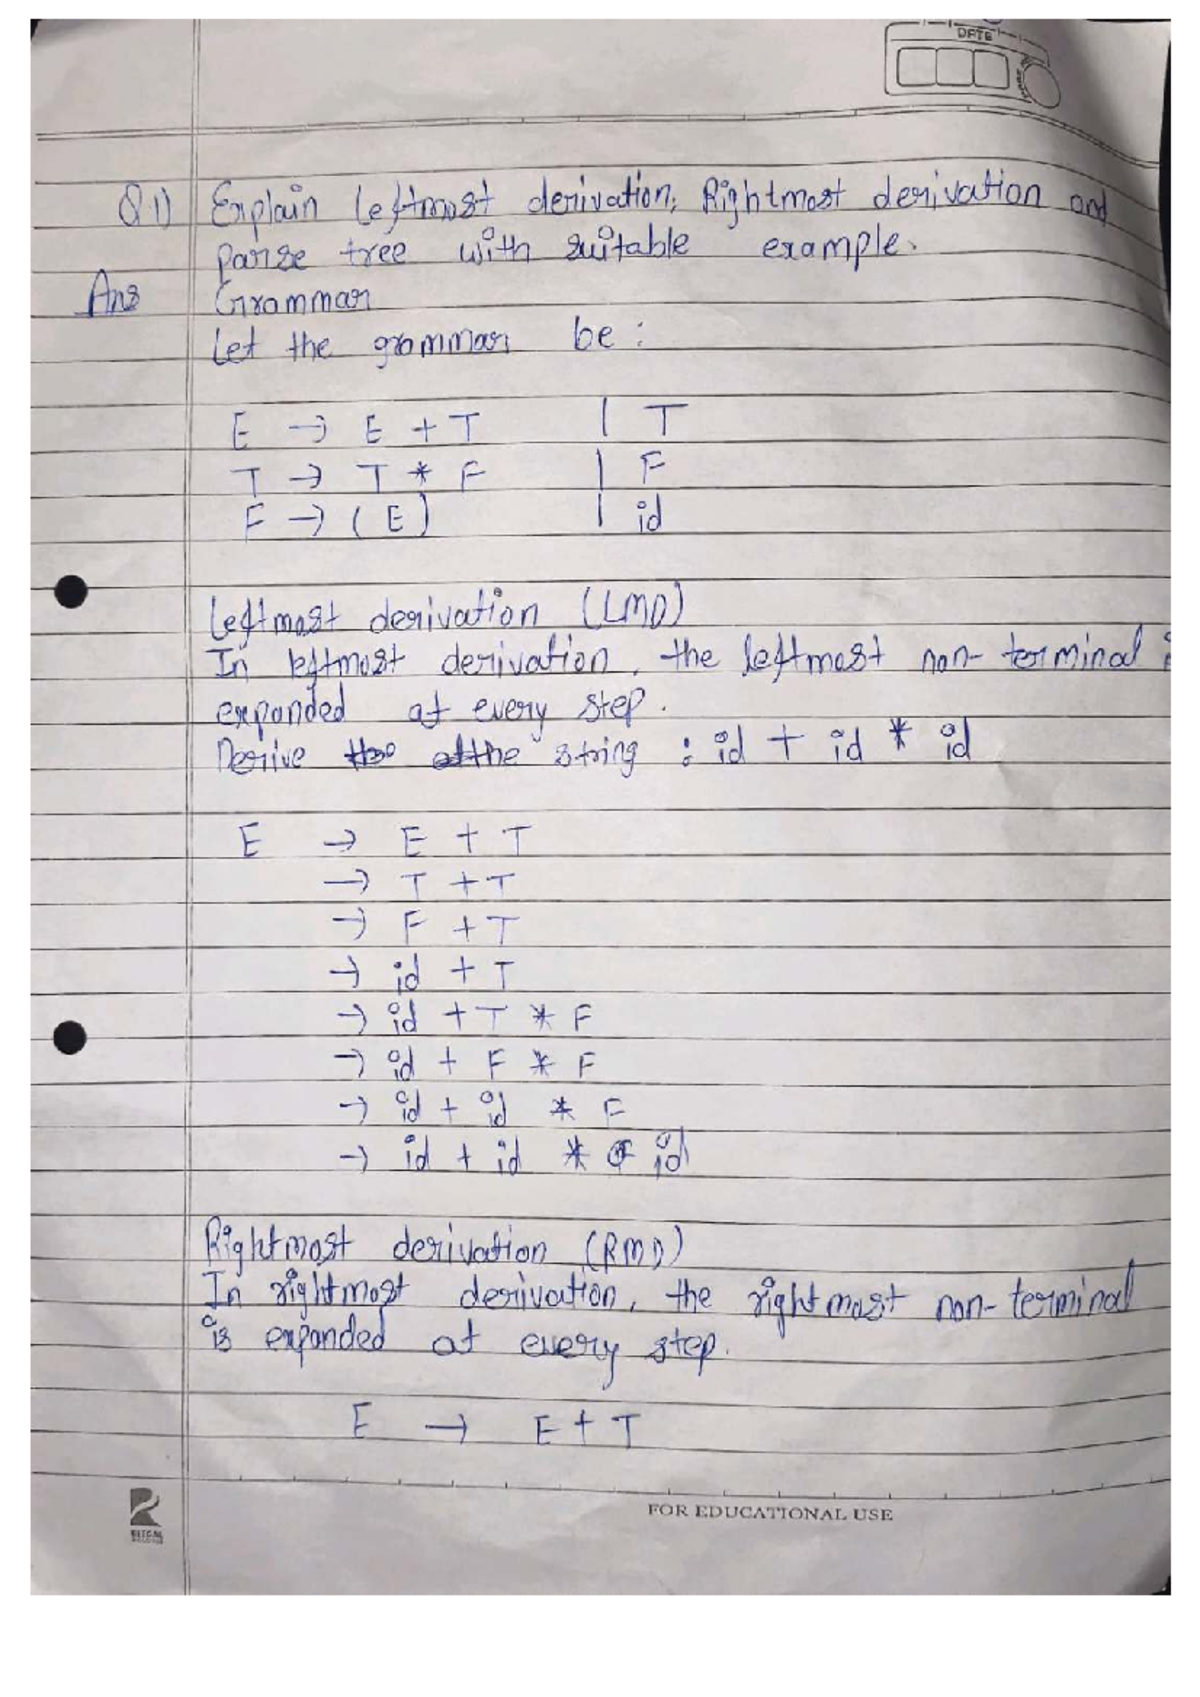 DATE
Q1) Explain leftmost derivation, Rightmost derivation and
parse tree with suitable example.
Ans Grammar
Let the grammar be :
E → E + T | T
T → T * F | F
F → ( E ) | id
Leftmost derivation (LMD)
In leftmost derivation, the leftmost non-terminal i
expanded at every step.
Derive the string : id + id * id
E → E + T
→ T + T
→ F + T
→ id + T
→ id + T * F
→ id + F * F
→ id + id * F
→ id + id * id
Rightmost derivation (RMD)
In rightmost derivation, the rightmost non-terminal
is expanded at every step.
E → E + T
FOR EDUCATIONAL USE